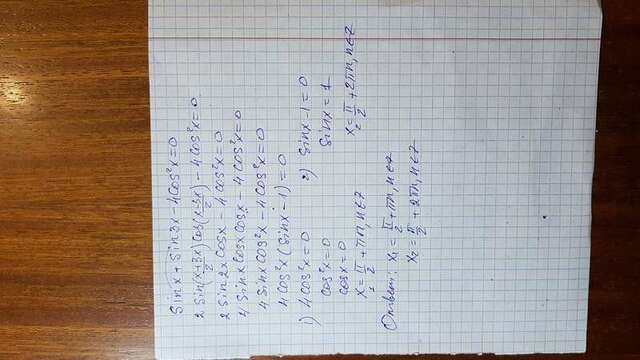 Sinx + Sin3x - 4Cos²x = 0
2 Sin(x+3x/2) Cos(x-3x/2) - 4Cos²x = 0
2 Sin2x Cosx - 4Cos²x = 0
4 Sinx Cosx Cosx - 4Cos²x = 0
4 Sinx Cos²x - 4Cos²x = 0
4Cos²x (Sinx - 1) = 0
1) 4Cos²x = 0 2) Sinx - 1 = 0
Cos²x = 0 Sinx = 1
Cosx = 0
x = π/2 + πn, n∈Z x = π/2 + 2πn, n∈Z
Ответ: x₁ = π/2 + πn, n∈Z
x₂ = π/2 + 2πn, n∈Z